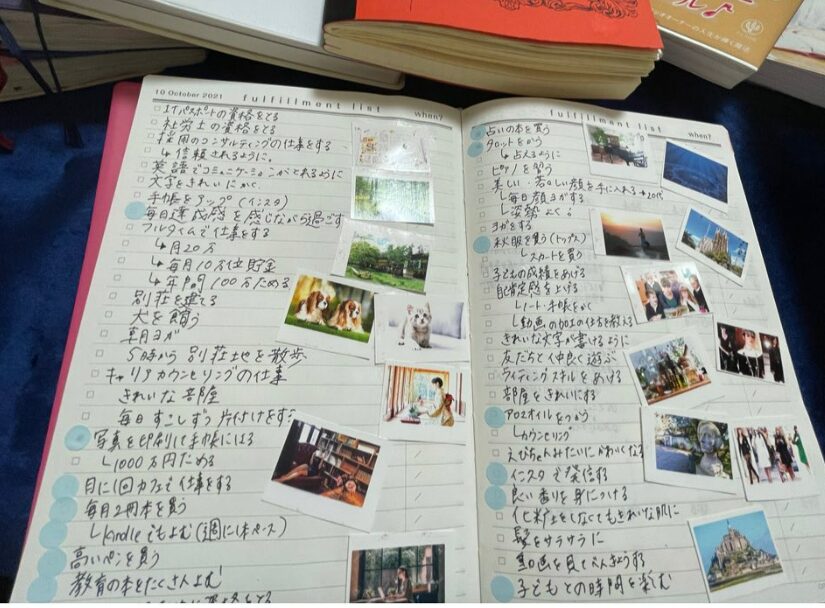 10 October 2021
fulfillment list
when?
ITパスポートの資格をとる
社労士の資格をとる
採用のコンサルティングの仕事をする
↳信頼されるように。
英語でコミュニケーションがとれるように
文字をきれいにかく
手帳をアップ(インスタ)
毎日達成感を感じながら過ごす
フルタイムで仕事をする
↳月20万
↳毎月10万位貯金
↳年間100万ためる
別荘を建てる
犬を飼う
朝ヨガ
5時から別荘地を散歩
キャリアカウンセリングの仕事
きれいな部屋
毎日すこしずつ片付けをする
写真を印刷して手帳にはる
↳1000万円ためる
月に1回カフェで仕事をする
毎月2冊本を買う
↳kindleでもよむ(週に1本ペース)
高いペンを買う
教育の本をたくさんよむ
fulfillment list
when?
占いの本を買う
タロットをかう
↳占えるように
ピアノを習う
美しい若々しい顔を手に入れる→20代
↳毎日顔ヨガする
↳姿勢よく。
ヨガをする
秋服を買う(トップス)
↳スカートを買う
子どもの成績をあげる
自己肯定感を上げる
↳ノート・手帳をかく
↳動画の加工の仕方を教える
きれいな文字が書けるように
友だちと仲良く遊ぶ
ライティングスキルをあげる
部屋をきれいにする
アロマオイルをつかう
↳カウンセリング
えびちゃんみたいにかわいくなる
インスタで発信する
良い香りを身につける
化粧をしなくてもきれいな肌に
髪をサラサラに
動画を見てべんきょうする
子どもとの時間を楽む